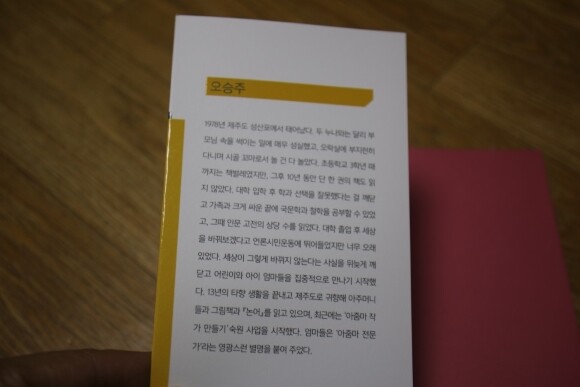 오승주
1978년 제주도 성산포에서 태어났다. 두 누나와는 달리 부
모님 속을 썩이는 일에 매우 성실했고, 오락실에 부지런히
다니며 시골 꼬마로서 놀 건 다 놀았다. 초등학교 3학년 때
까지는 책벌레였지만, 그후 10년 동안 단 한 권의 책도 읽
지 않았다. 대학 입학 후 학과 선택을 잘못했다는 걸 깨닫
고 가족과 크게 싸운 끝에 국문학과 철학을 공부할 수 있었
고, 그때 인문 고전의 상당 수를 읽었다. 대학 졸업 후 세상
을 바꿔보겠다고 언론시민운동에 뛰어들었지만 너무 오래
있었다. 세상이 그렇게 바뀌지 않는다는 사실을 뒤늦게 깨
닫고 어린이와 아이 엄마들을 집중적으로 만나기 시작했
다. 13년의 타향 생활을 끝내고 제주도로 귀향해 아주머니
들과 그림책과 『논어』를 읽고 있으며, 최근에는 '아줌마 작
가 만들기' 숙원 사업을 시작했다. 엄마들은 '아줌마 전문
가'라는 영광스런 별명을 붙여 주었다.